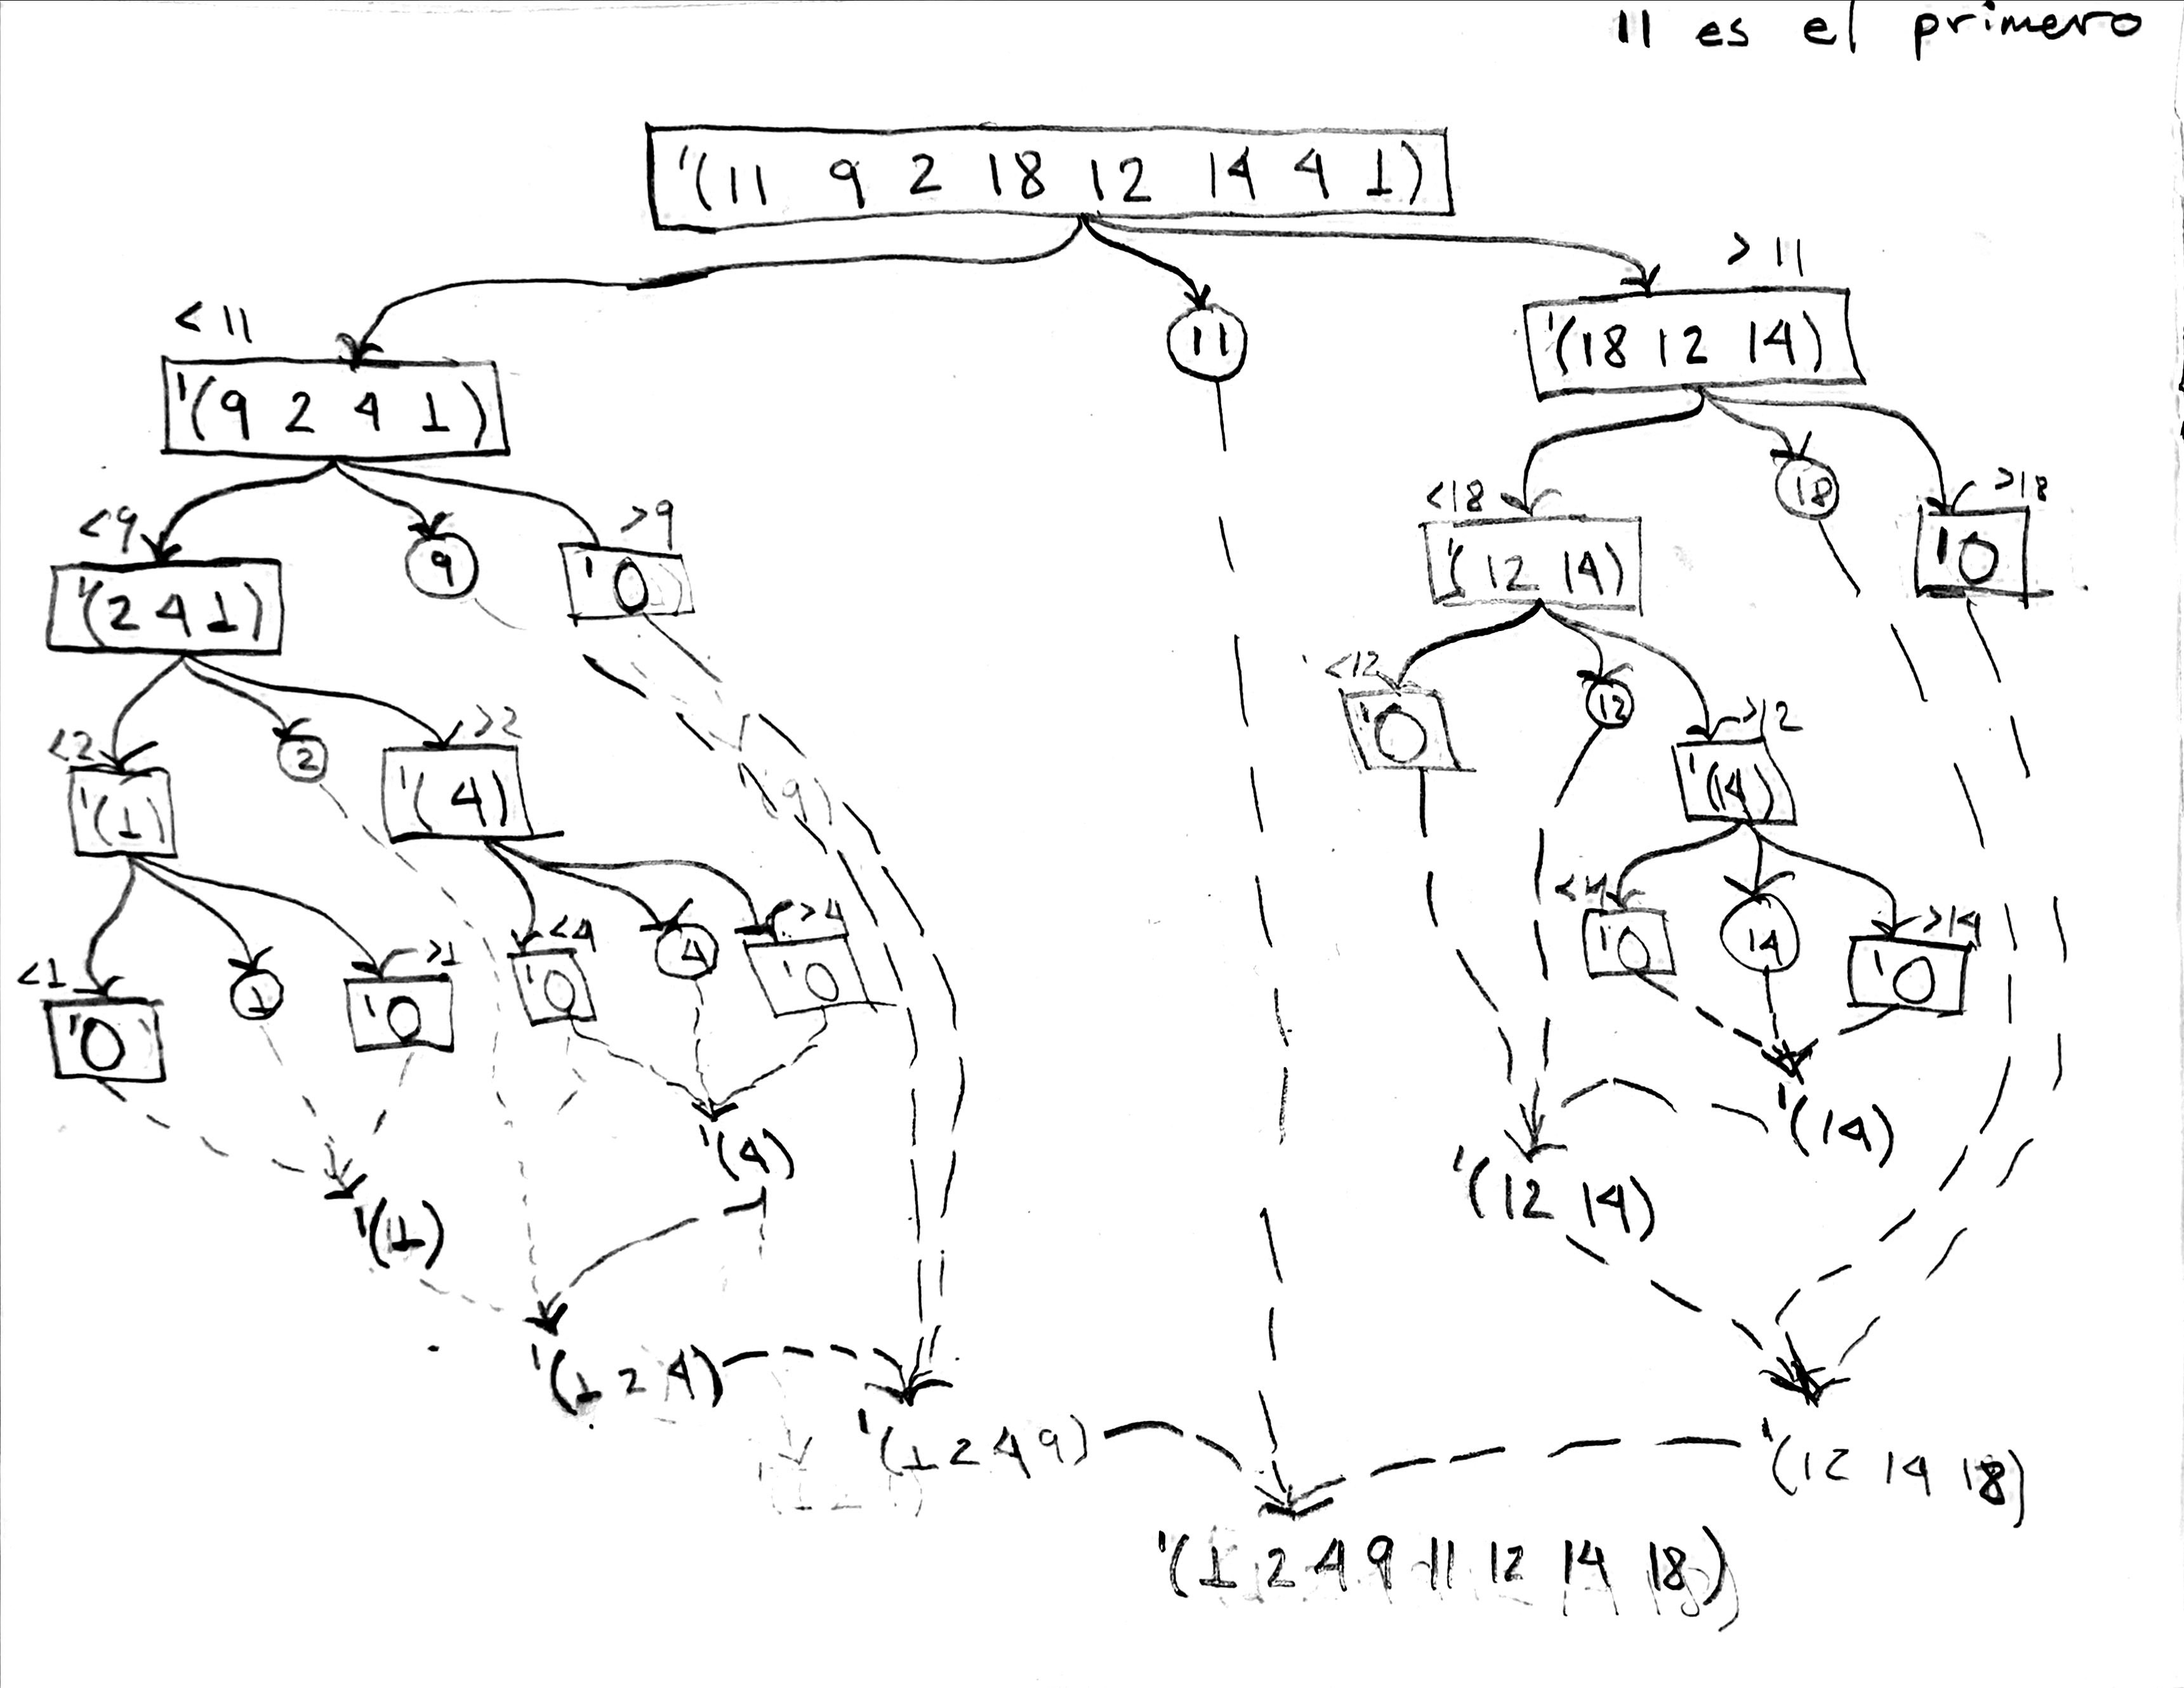 11 es el primero
'(11 9 2 18 12 14 4 1)
<11
11
>11
'(9 2 4 1)
'(18 12 14)
<9
9
>9
<18
18
>18
'(2 4 1)
'()
'(12 14)
'()
<2
2
>2
<12
12
>12
'(1)
'(4)
'()
'(14)
<1
1
>1
<4
4
>4
<14
14
>14
'()
'()
'()
'()
'()
'()
'(1)
'(4)
'(14)
'(12 14)
'(1 2 4)
'(1 2 4 9)
'(12 14 18)
'(1 2 4 9 11 12 14 18)